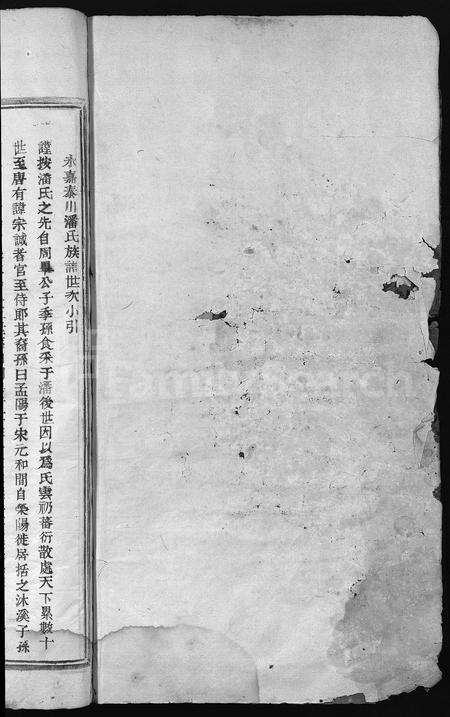 永嘉泰川潘氏族譜世次小引
謹按潘氏之先自周畢公子季孫食采于潘後世因以爲氏雲礽蕃衍散處天下累數十
世至唐有諱宗誠者官至侍郎其裔孫曰孟陽于宋元和間自滎陽徙居括之沐溪子孫
FamilySearch